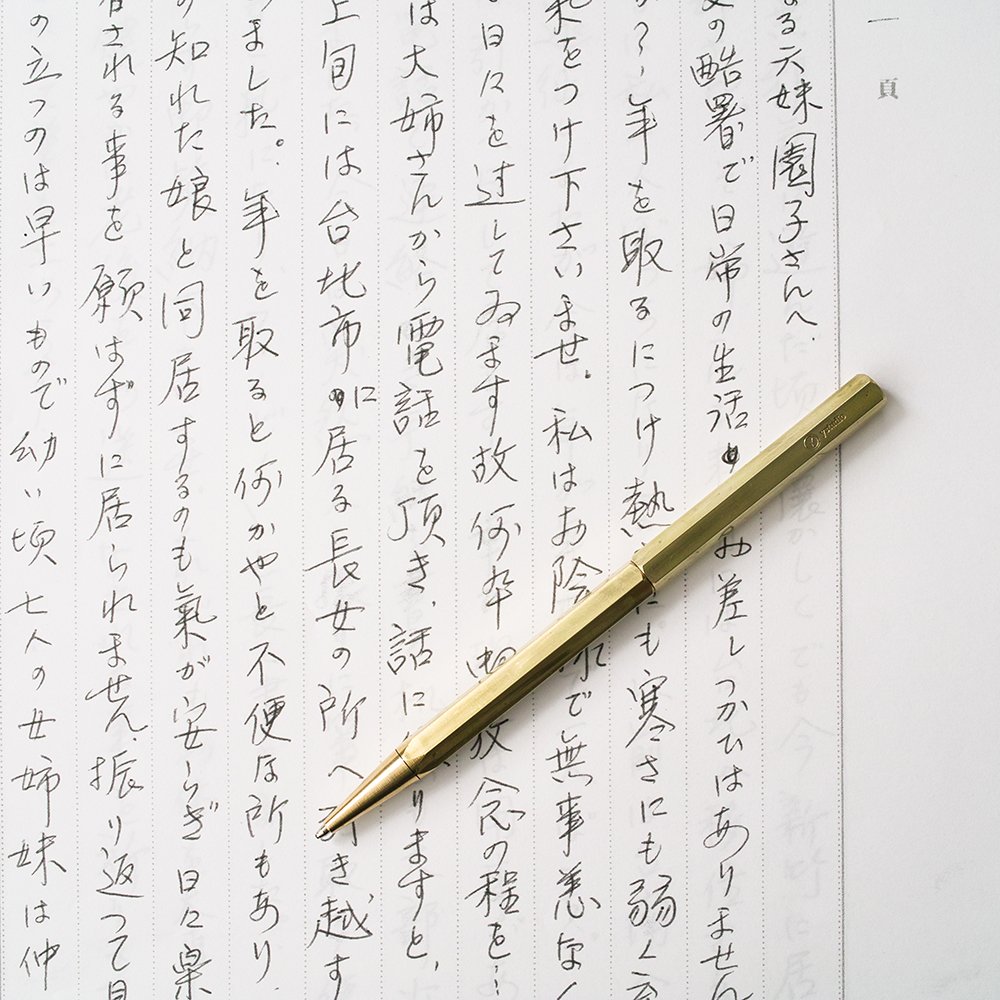 一 頁
る六妹園子さんへ.
の酷署で日常の生活 差しつかひはありません
か?、年を取るにつけ熱 にも寒さにも弱く
をつけ下さいませ. 私はお陰 で無事恙なく
日々を过してゐます故何卆 放念の程を…
は大姉さんから電話を頂き、話に りますと、
上旬には台北市に居る長女の所へ引き越す
ました。年を取ると何かやと不便な所もあり
の知れた娘と同居するのも氣が安らぎ日々楽
される事を願はずに居られません、振り返つて見
の立つのは早いもので幼い頃七人の女姉妹は仲
ystudio